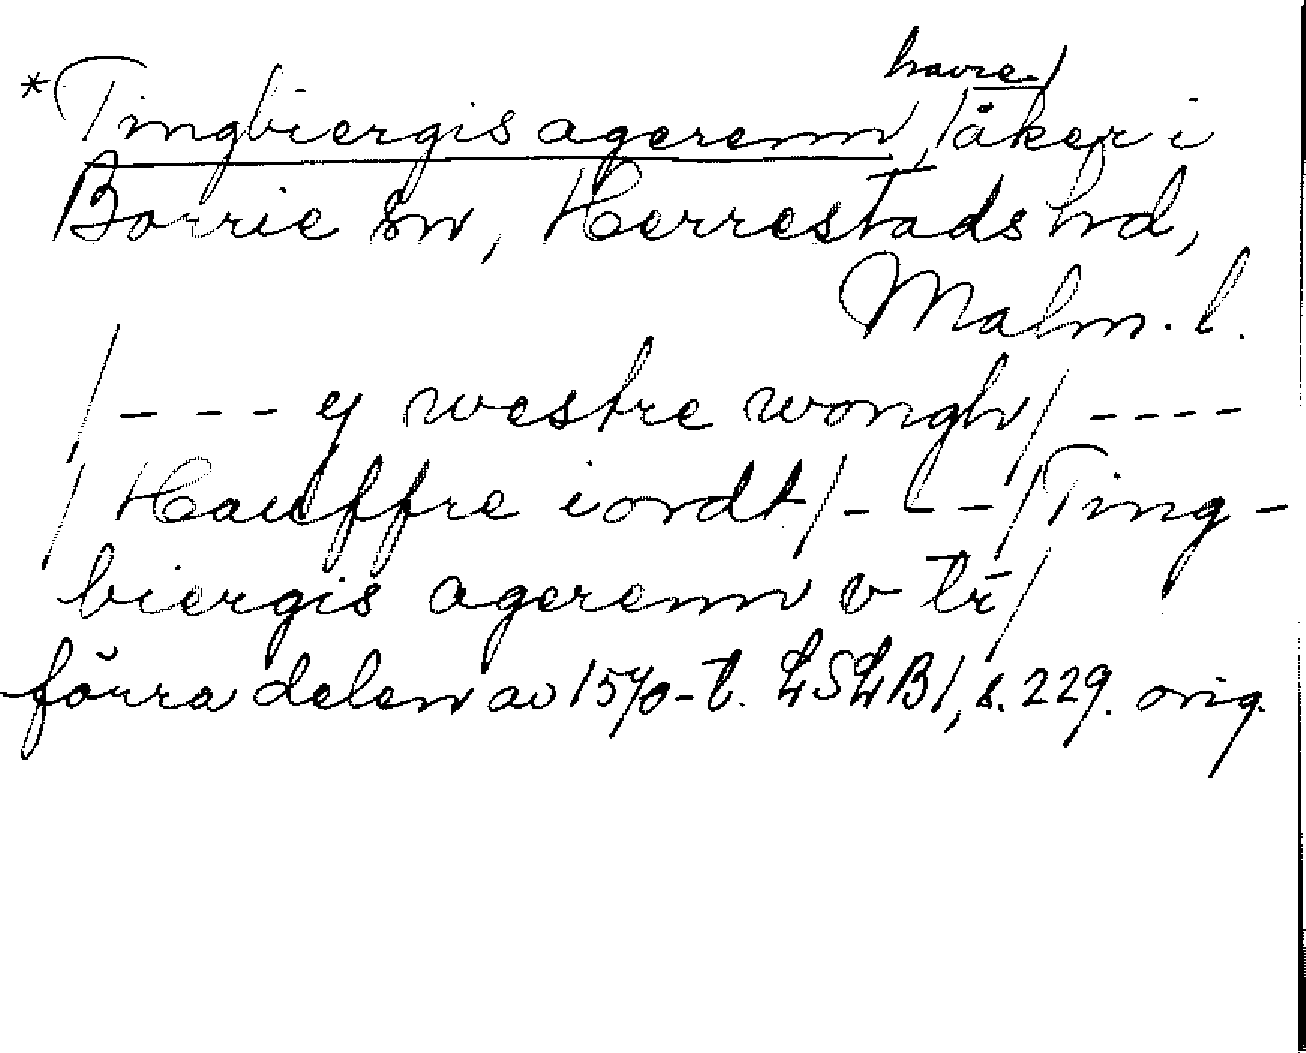 havre-/
*Tingbiergis agerenn, /åker i
Borrie sn, Herrestads hd,
Malm. l.
/---- y westre wongh/ ----
/ Hauffre iordt/---/Ting-
biergis agerenn v tr/
förra delen av 1570-t. LSLB1, s. 229. orig.